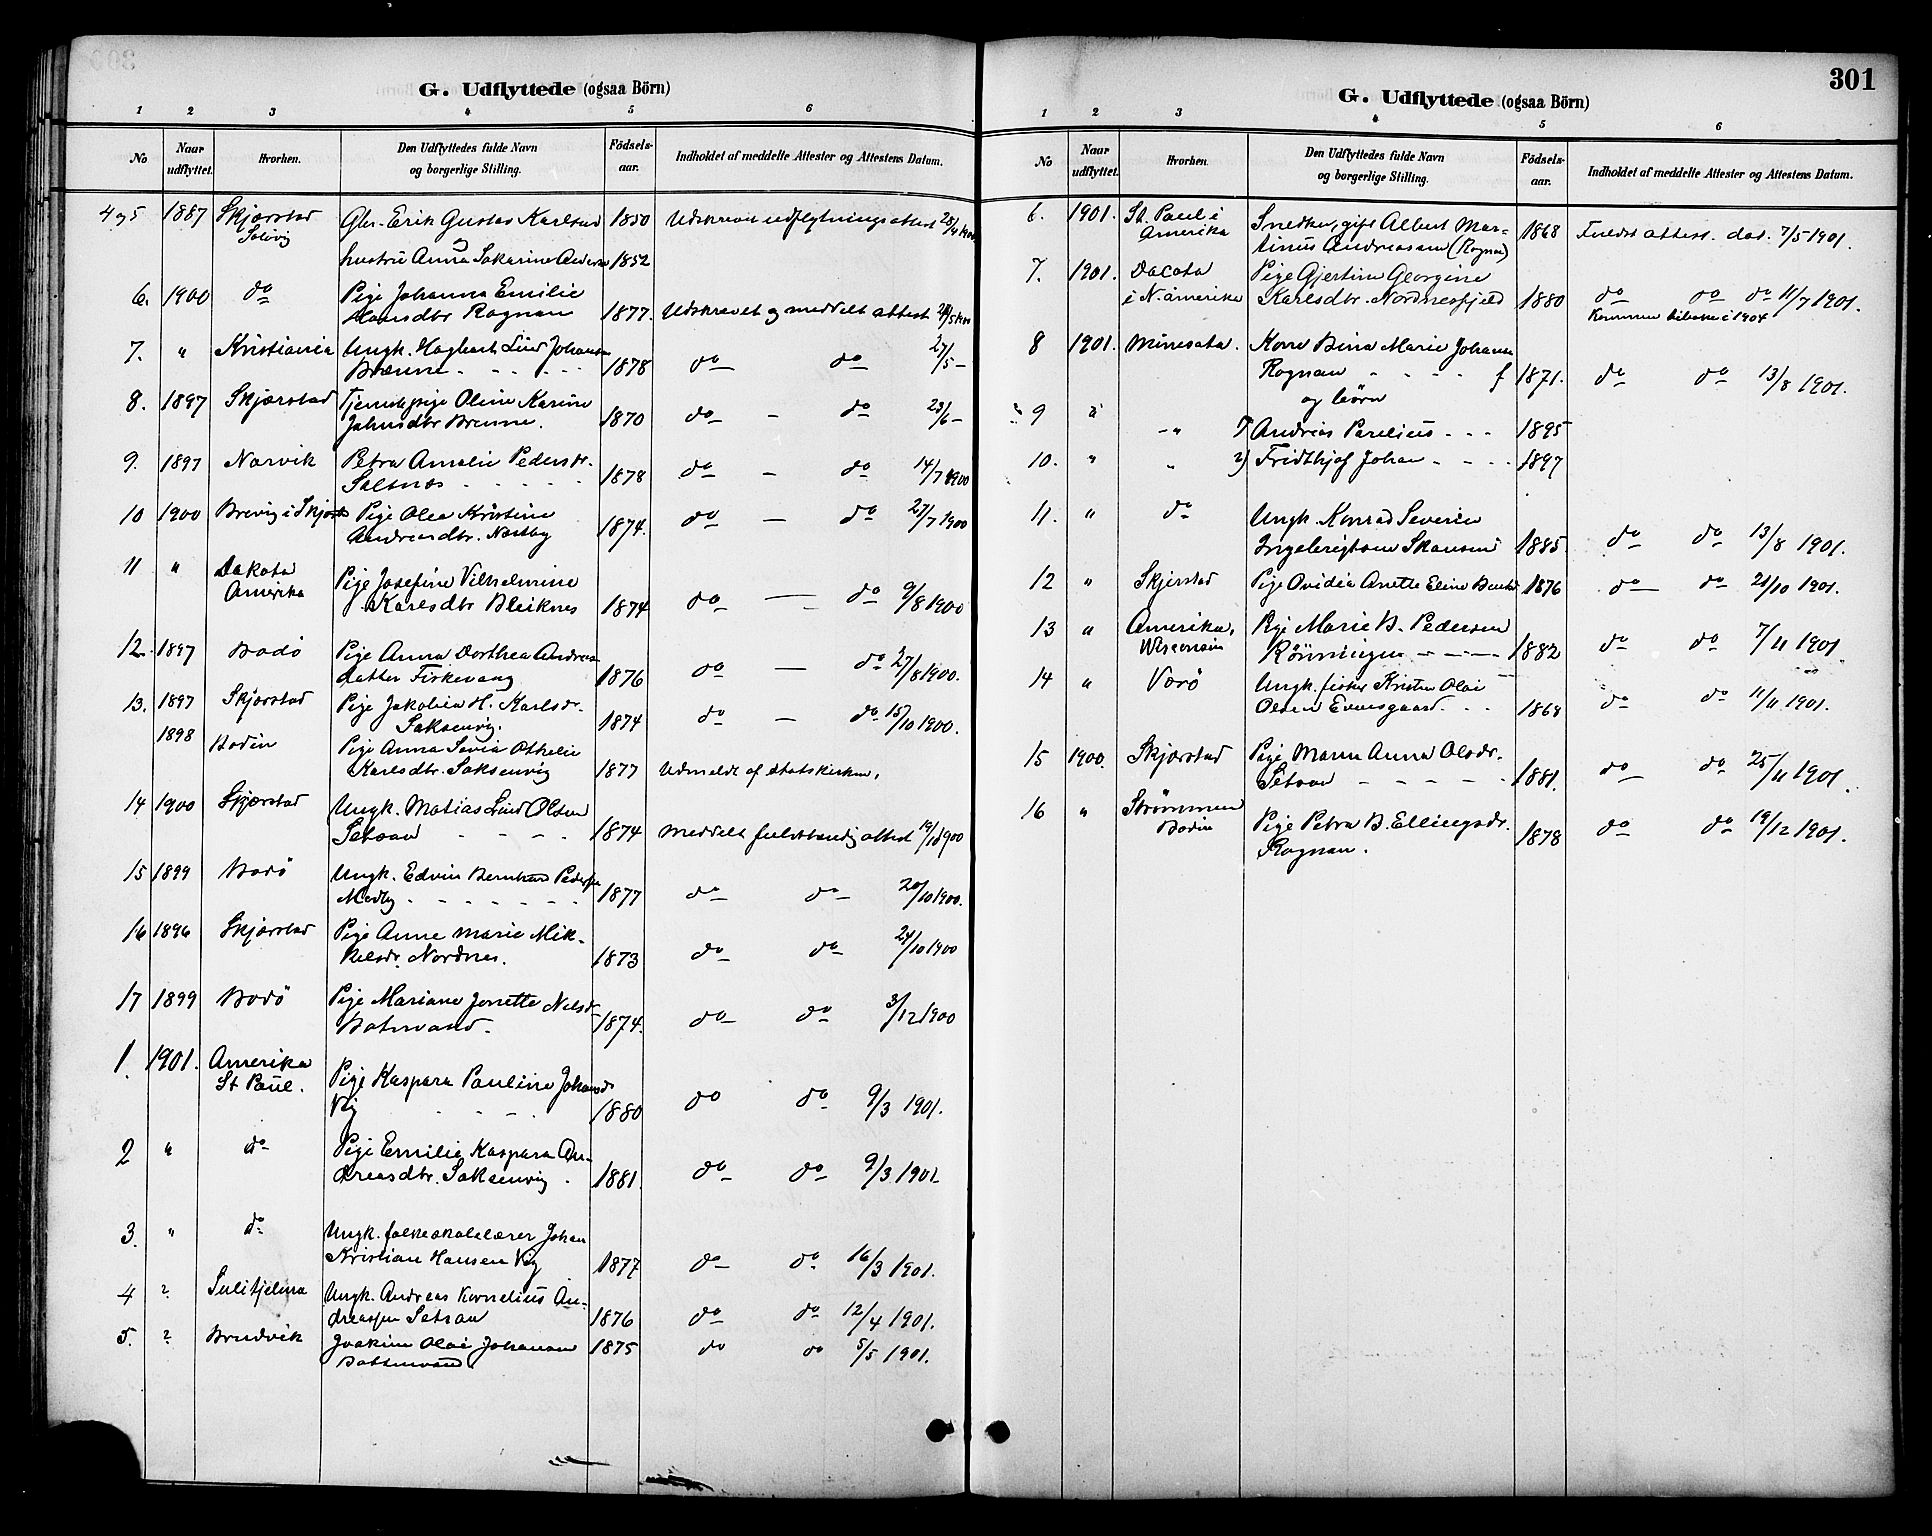 301
G. Udflyttede (ogsaa Börn)
1 2 3 4 5 6
No Naar udflyttet. Hvorhen. Den Udflyttedes fulde Navn og borgerlige Stilling. Födsels-aar. Indholdet af meddelte Attester og Attestens Datum.
4 og 5 1887 Skjærstad Erik Gustav Karlsen 1850 Udskrevet udflytningsattest 28/4
hustru Anna Sakarine 1852
6. 1900 do Pige Johanna Emilie
Hansdtr Rognan 1877. Udskrevet og meddelt attest
7. " Kristiania Ungk. Hagbart Lind Johansen
Brænne 1878 do do 27/5 –
8. 1897 Skjærstad Tjenestepige Oline Karine
Johnsdtr Brenne. 1870 do – do 23/6 –
9. 1897 Narvik Petra Amalie Pedersdr.
Saltnes 1878 do – do 14/7 1900
10 1900 Brevig i Skjerst Pige Olea Kristine
Andreasdtr. Næstby 1874. do – do 27/7 1900
11 " Dakota
Amerika Pige Josefine Vilhelmine
Karlsdtr Bleiknes 1874 do – do 9/8 1900
12. 1897 Bodö Pige Anna Dorthea Andreas
datter Fiskevaag 1876 do – do 27/8 1900.
13. 1897 Skjerstad Pige Jakobia H. Karlsdr.
Saksenvig. 1874 do – do 15/10 1900.
1898 Bodin Pige Anna Sovia Othelie
Karlsdtr. Saksenvig 1877 Udmeldt af statskirken.
14 1900 Skjerstad Ungk. Matias Lind Olsen
Setsaa 1874 Meddelt fuldstændig attest
15 1899 Bodö Ungk. Edvin Bernhard Peders
Medby 1877 do do 20/10 1900.
16 1896 Skjærstad Pige Anne Marie Mik-
kelsdr. Nordnes. 1873 do do 24/10 1900
17 1899 Bodö Pige Mariane Jonette Nilsd
Botnvand. 1874. do do 3/12 1900
1. 1901. Amerika
St Paul. Pige Kaspara Pauline Johansd
Vig 1880 do do 9/3 1901.
2 " do Pige Emilie Kaspara An-
dreasdtr. Saksenvig 1881 do do 9/3 1901
3. " do Ungk. folkeskolelærer Johan
Kristian Hansen Vig 1877 do do 16/3 1901.
4 ? Sulitjelma Ungk. Andreas Kornelius An-
dreassen Setsaa 1876 do do 12/4 1901.
5. ? Brudvik Joakim Olai Johansen
Botnvand 1875 do do 5/5 1901.
G. Udflyttede (ogsaa Börn)
1 2 3 4 5 6
No Naar udflyttet. Hvorhen. Den Udflyttedes fulde Navn og borgerlige Stilling. Födsels-aar. Indholdet af meddelte Attester og Attestens Datum.
6. 1901. St. Paul i
Amerika Snedker, gift Albert Mar-
tinus Andreassen (Rognan) 1868 Fuldst attest. dat. 7/5 1901.
7. 1901. Dacota
i N. amerika Pige Gjertine Georgine
Karlsdtr. Nordnesfjeld 1880 do do do 11/7 1901.
Kommen tilbake i 1904
8 1901. Minesota. Kone Bina Marie Johans
Rognan f 1871. do do 13/8 1901.
og börn
9 " " 1) Andreas Parelius 1895
10. " " 2) Fridthjof Johan 1897
11. " do Ungk. Konrad Severin
Ingebrigtsen Skansen 1885. do do 13/8 1901.
12 " Skjerstad Pige Ovidia Anette Eline 1876 do do 21/10 1901.
13 " Amerika,
Wisconsin Pige Marie B. Pedersen
Rönningen 1882 do do 7/11 1901.
14 " Værö Ungk. fisker Kristen Olai
Olsen Evensgaard. 1868 do do 11/11 1901.
15 1900. Skjærstad Pige Maren Anna Olsdr.
Setsaa 1881. do do 25/11 1901.
16 " Strömmen
Bodin Pige Petra B. Ellingsdr.
Rognan. 1878 do do 19/12 1901.